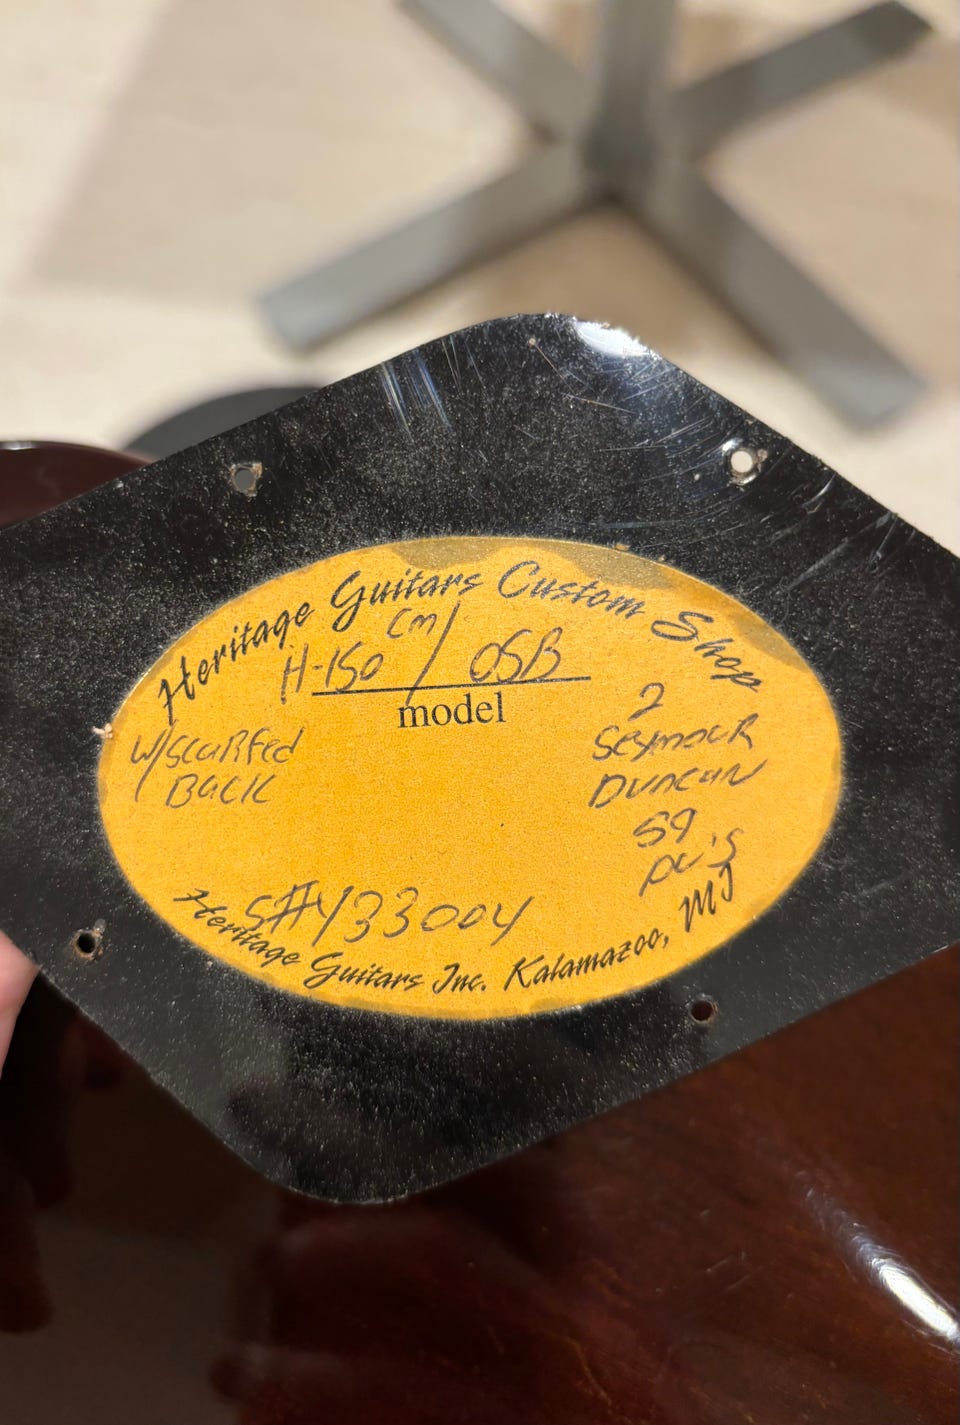 Heritage Guitars Custom Shop
H-150 CM / OSB
model
W/SCARFED
BACK
2
SEYMOUR
DUNCAN
59
PU'S
S#Y33004
Heritage Guitars Inc. Kalamazoo, MI